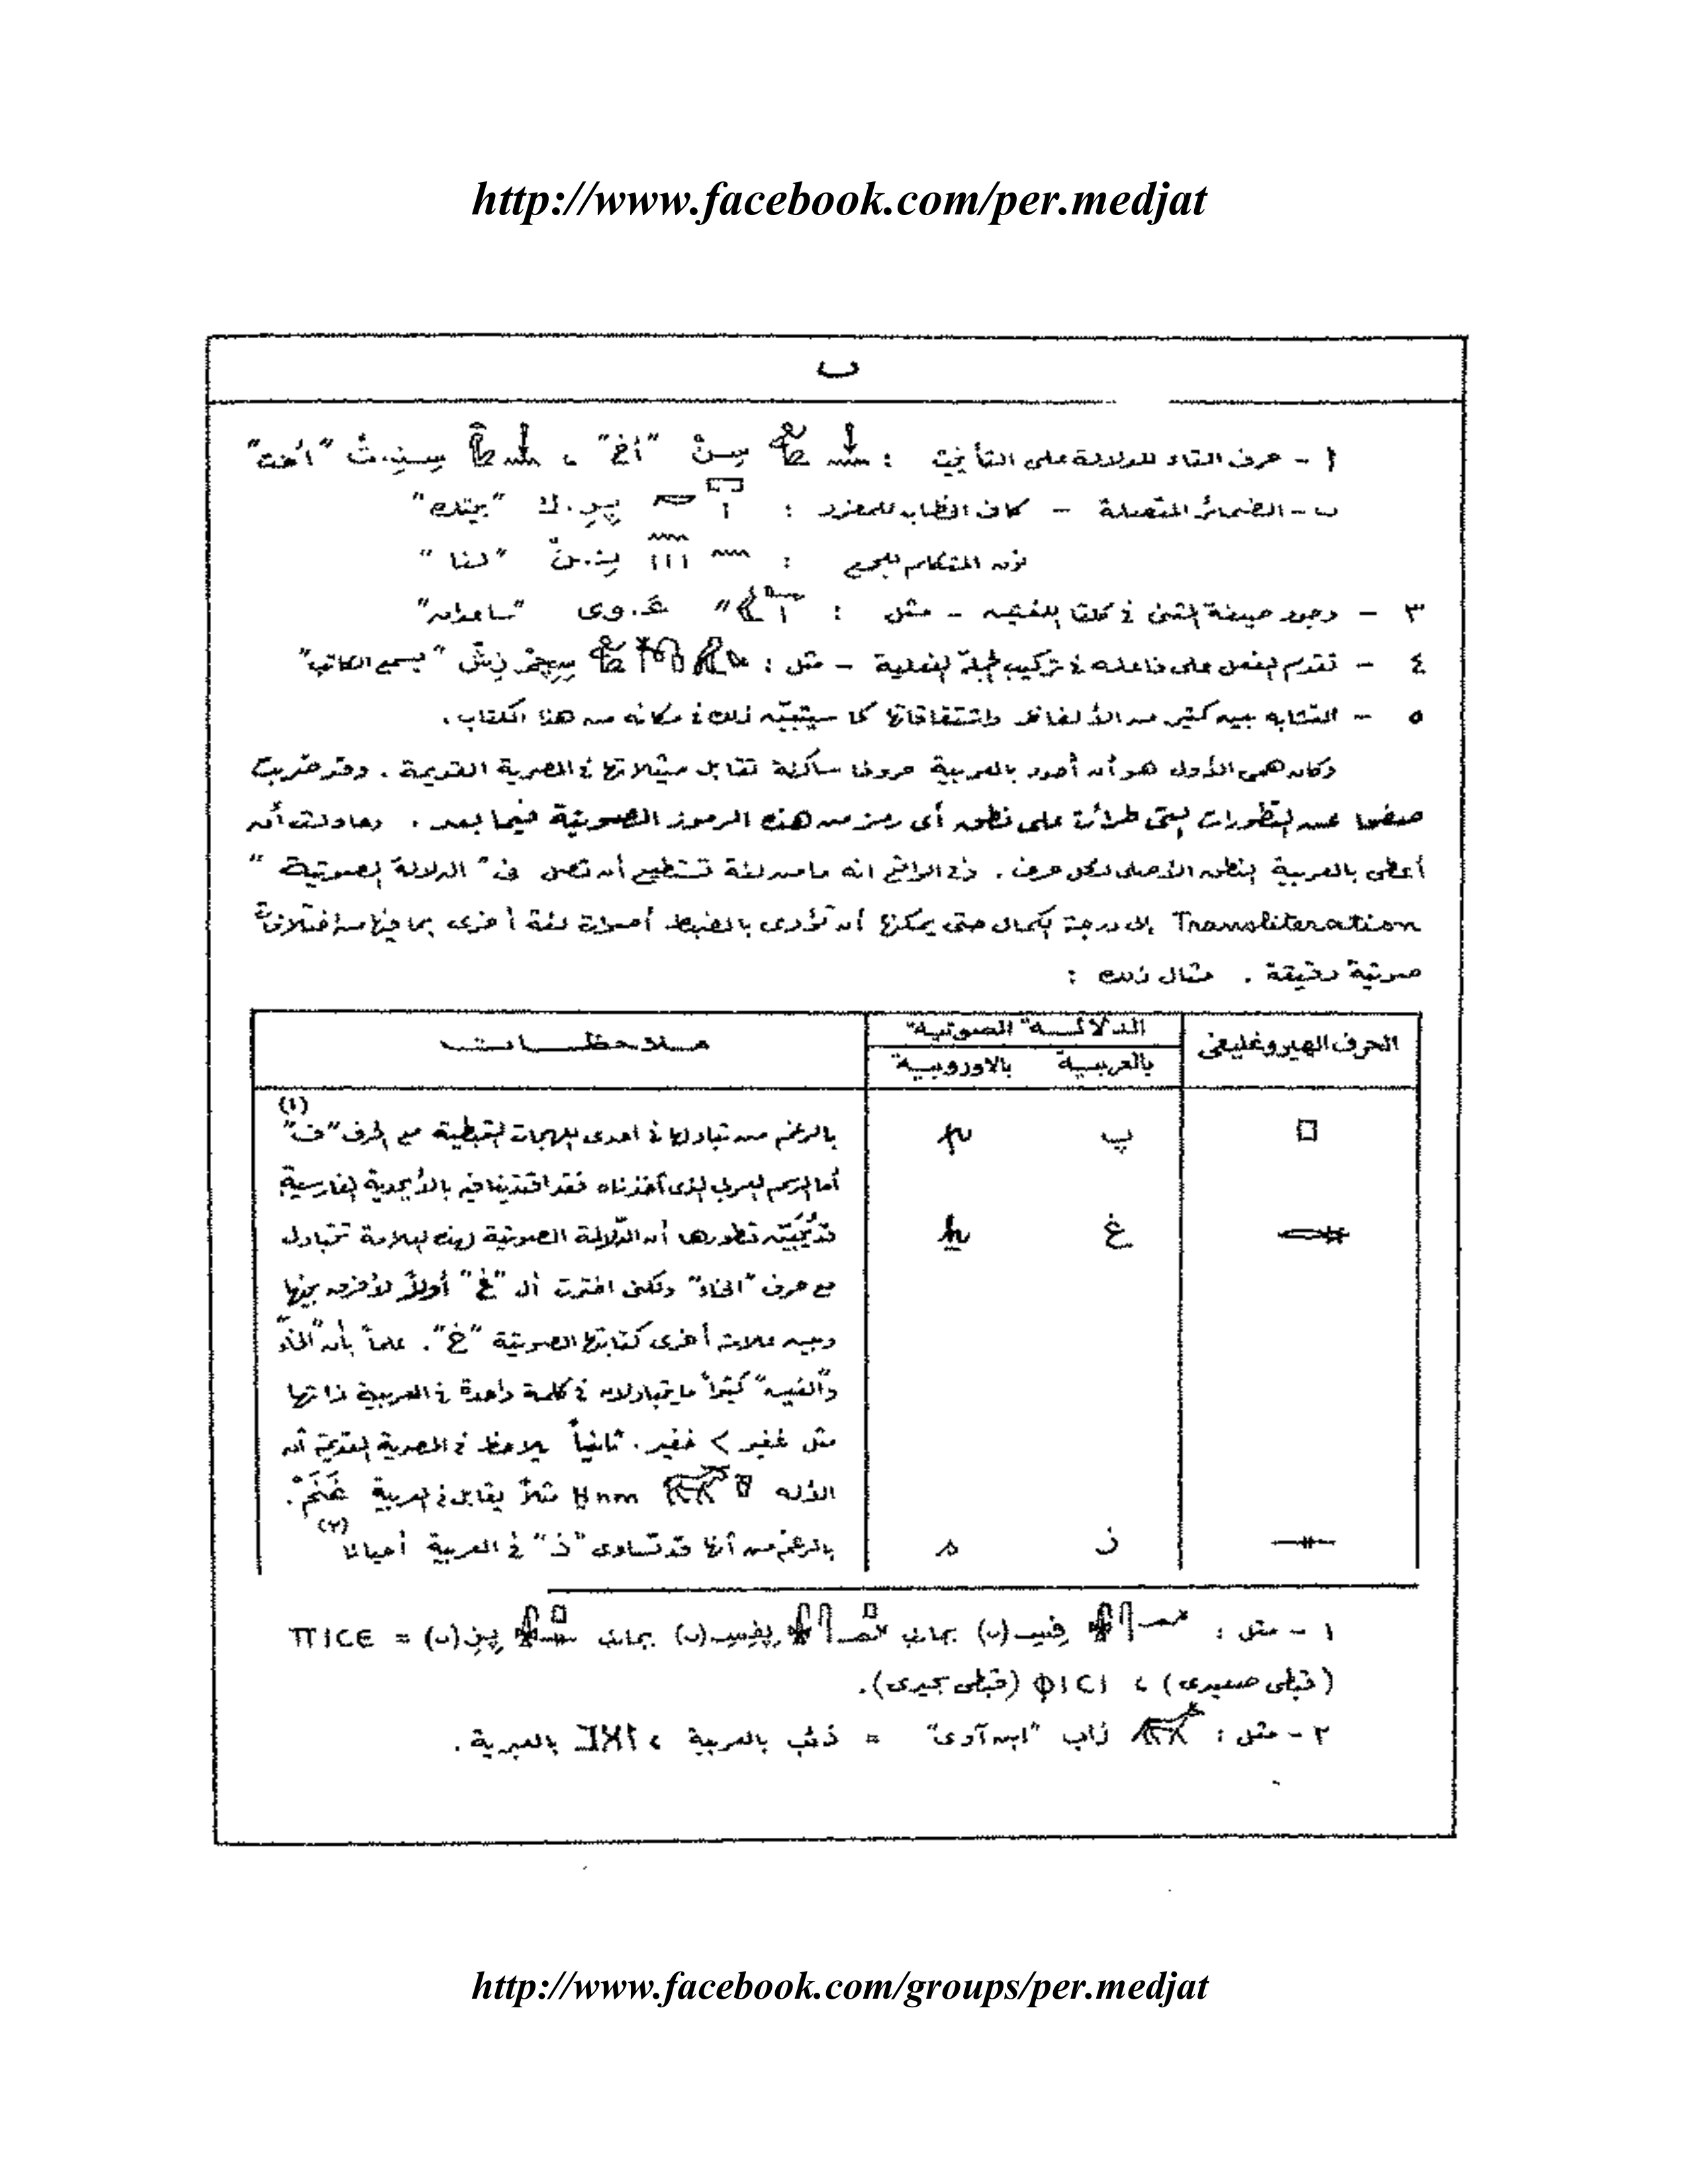 http://www.facebook.com/per.medjat
ب
أ - حرف التاء للدلالة على التأنيث : سِنْ "أخ" ، سِنِ.تْ "أخت"
ب - الضمائر المتصلة - كاف الخطاب للمفرد : پِرِ.ك "بيتك"
نون المتكلم للجمع : نِ.نْ "لنا"
٣ - وجود صيغة المثنى في كلتا اللغتين - مثل : عَ.وى "ساعدان"
٤ - تقدم الفعل على فاعله في تركيب الجملة الفعلية - مثل : سِچِمْ زِشْ "يسمع الكاتب"
٥ - التشابه بين كثير من الألفاظ واشتقاقاتها كما سيتبيّن ذلك في مكانه من هذا الكتاب .
وكان همى الأول هو أن أجد بالعربية حروفا ساكنة تقابل مثيلاتها في المصرية القديمة . وقد ضربت
صفحا عن التطورات التى طرأت على نطق أى رمز من هذه الرموز الصوتية فيما بعد . وحاولت أن
أعطى بالعربية النطق الأصلى لكل حرف . وفى الواقع انه ما من لغة تستطيع أن تصل فى "الدلالة الصوتية"
Transliteration إلى درجة الكمال حتى يمكنها أن تؤدى بالضبط أصوات لغة أخرى بما فيها من اختلافات
صوتية دقيقة . مثال ذلك :
الحرف الهيروغليفى الدلالة الصوتية ملاحظات
بالعربية بالاوروبية
پ p بالرغم من تبادلها في احدى اللهجات القبطية مع الحرف "ف" (١)
أما الرسم العربى الذى أخذناه فقد اقتدينا فيه بالأبجدية الفارسية
غ ẖ قد يُبيّن تطورها أن الدّلالة الصوتية لهذه العلامة تتبادل
مع حرف "الخاء" ولكنى اخترت ال "غ" أولاً لأفرق بينها
وبين علامة أخرى كتابتها الصوتية "خ". علماً بأن "الخاء"
و"الغين" كثيراً ما يتبادلان في كلمة واحدة في العربية ذاتها
مثل غفير > خفير . ثانياً يلاحظ في المصرية القديمة أن
الإله H̱nm مثلاً يقابل في العربية غَنَمْ .
ز s بالرغم من أنها قد تساوى "ذ" في العربية أحيانا (٢)
١ - مثل : فِسِ(ى) بجانب پِفِسِ(ى) بجانب پِسِ(ى) = ΠΙCE
(قبطى صعيدى) ، ΦΙCΙ (قبطى بحيرى).
٢ - مثل : زاب "ابن آوى" = ذئب بالعربية ، זאב بالعبرية .
http://www.facebook.com/groups/per.medjat